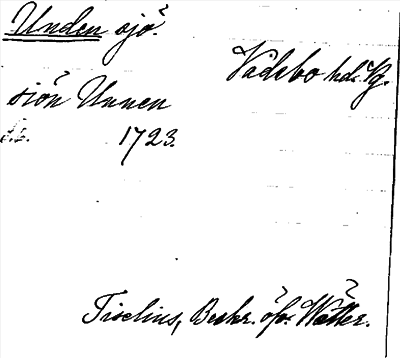 Unden sjö.
Vadsbo hd. Vg.
siön Unnen
1723.
Tiselius, Beskr. öfv. Wätter.